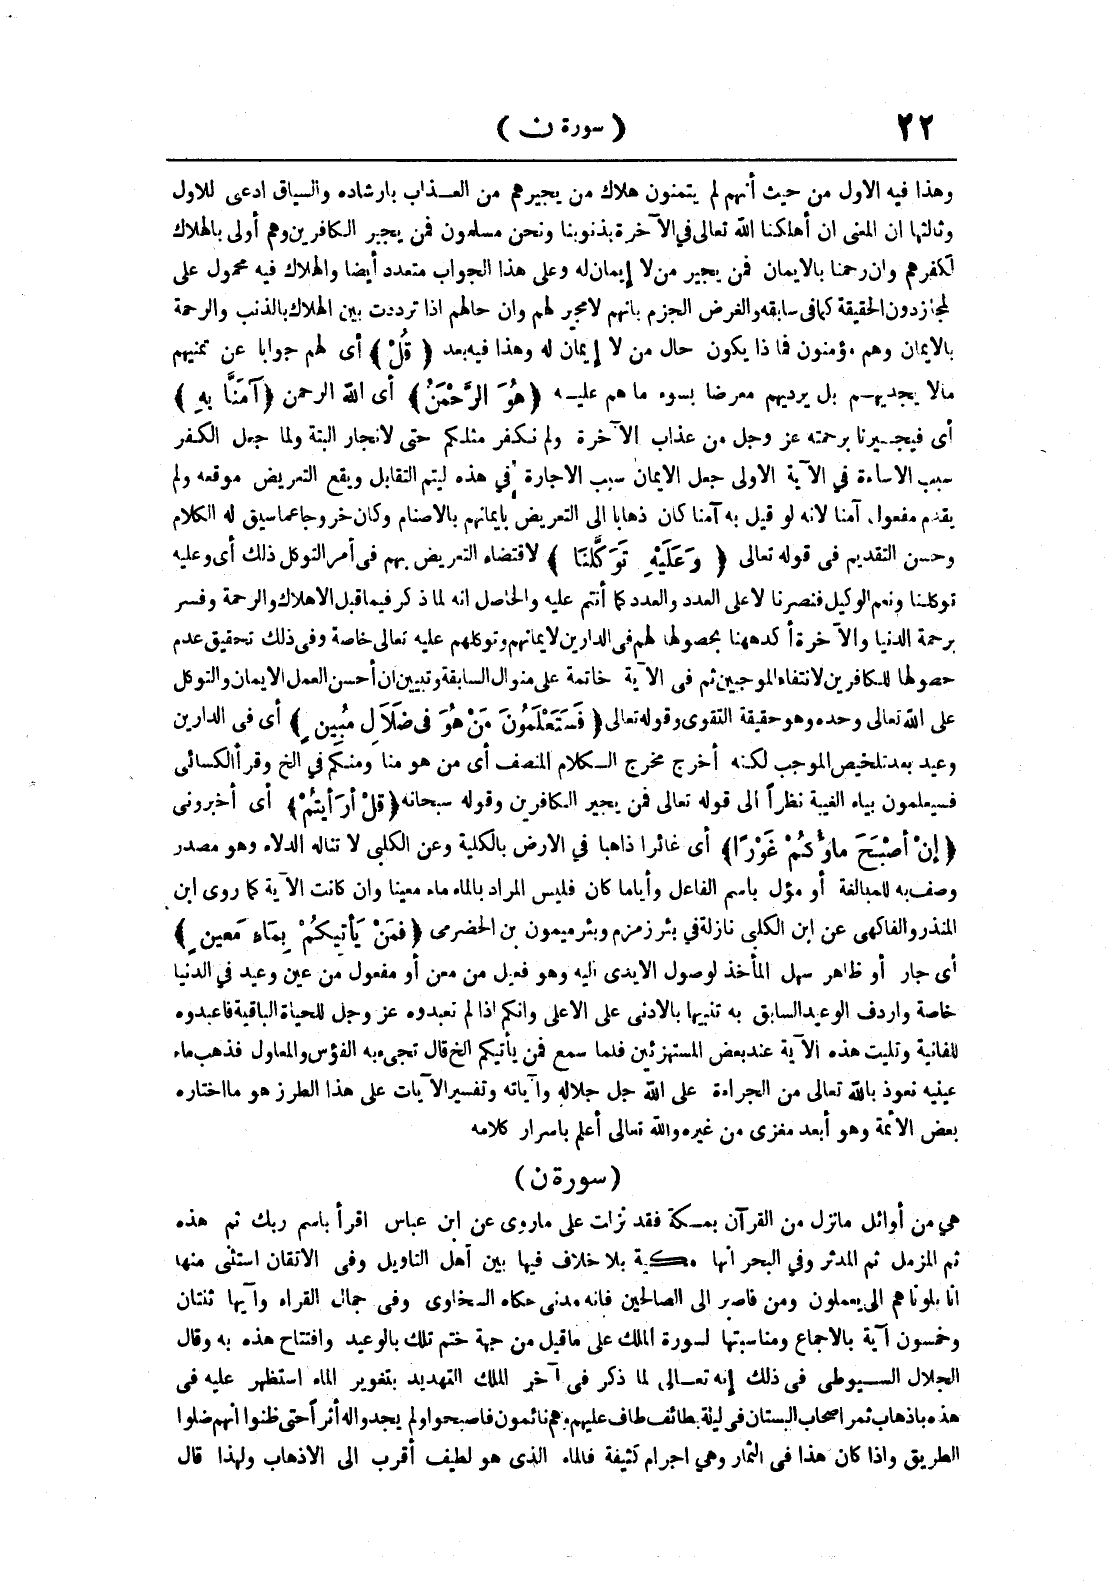 ٢٢ ( سورة ن )
وهذا فيه الاول من حيث أنهم لم يتمنون هلاك من يجيرهم من العـذاب بارشاده والسياق ادعى للاول
وثالثها ان المعنى ان أهلكنا الله تعالى في الآخرة بذنوبنا ونحن مسلمون فمن يجير الكافرين وهم أولى بالهلاك
لكفرهم وان رحمنا بالايمان فمن يجير من لا إيمان له وعلى هذا الجواب متعدد أيضا والهلاك فيه محمول على
لمجاز دون الحقيقة كما فى سابقه والغرض الجزم بانهم لا مجير لهم وان حالهم اذا ترددت بين الهلاك بالذنب والرحمة
بالايمان وهم مؤمنون فما ذا يكون حال من لا إيمان له وهذا فيه بعد ﴿ قُلْ ﴾ أى لهم جوابا عن تمنيهم
مالا يجديهـم بل يرديهم معرضا بسوء ما هم عليـه ﴿ هُوَ الرَّحْمَنُ ﴾ أى الله الرحمن ﴿ آمَنَّا بهِ ﴾
أى فيجـيرنا برحمته عز وجل من عذاب الآخرة ولم نكفر مثلكم حتى لا نجار البتة ولما جعل الكفر
سبب الاساءة في الآية الاولى جعل الايمان سبب الاجارة في هذه ليتم التقابل ويقع التعريض موقعه ولم
يقدم مفعول آمنا لانه لو قيل به آمنا كان ذهابا الى التعريض بايمانهم بالاصنام وكان خروجا عما سيق له الكلام
وحسن التقديم فى قوله تعالى ﴿ وَعَلَيْهِ تَوَكَّلْنَا ﴾ لاقتضاء التعريض بهم فى أمر التوكل ذلك أى وعليه
توكلنا ونعم الوكيل فنصرنا لا على العدد والعدد كما أنتم عليه والحاصل انه لما ذكر فيما قبل الاهلاك والرحمة وفسر
برحمة الدنيا والآخرة أكدههنا بحصولها لهم فى الدارين لايمانهم وتوكلهم عليه تعالى خاصة وفى ذلك تحقيق عدم
حصولها للكافرين لانتفاء الموجبين ثم فى الآية خاتمة على منوال السابقة وتبيين ان أحسن العمل الايمان والتوكل
على الله تعالى وحده وهو حقيقة التقوى وقوله تعالى ﴿ فَسَتَعْلَمُونَ مَنْ هُوَ فى ضَلَالٍ مُبِينٍ ﴾ أى فى الدارين
وعيد بعد تلخيص الموجب لكنه أخرج مخرج الـكلام المنصف أى من هو منا ومنكم في الخ وقرأ الكسائى
فسيعلمون بياء الغيبة نظراً الى قوله تعالى فمن يجير الكافرين وقوله سبحانه ﴿ قُلْ أرَأيْتُمْ ﴾ أى أخبرونى
﴿ إنْ أصْبَحَ ماؤُكُمْ غَوْرًا ﴾ أى غائرا ذاهبا في الارض بالكلية وعن الكلبى لا تناله الدلاء وهو مصدر
وصف به للمبالغة أو مؤل باسم الفاعل وأياما كان فليس المراد بالماء ماء معينا وان كانت الآية كما روى ابن
المنذر والفاكهى عن ابن الكلبى نازلة في بئر زمزم وبئر ميمون بن الحضرمى ﴿ فمَنْ يَأتيكُمْ بِمَاءٍ مَعينٍ ﴾
أى جار أو ظاهر سهل المأخذ لوصول الايدى اليه وهو فعيل من معن أو مفعول من عين وعيد في الدنيا
خاصة واردف الوعيد السابق به تنبيها بالادنى على الاعلى وانكم اذا لم تعبدوه عز وجل للحياة الباقية فاعبدوه
للفانية وتليت هذه الآية عند بعض المستهزئين فلما سمع فمن يأتيكم الخ قال تجىء به الفؤس والمعاول فذهب ماء
عينيه نعوذ بالله تعالى من الجراءة على الله جل جلاله وآياته وتفسير الآيات على هذا الطرز هو ما اختاره
بعض الأئمة وهو أبعد مغزى من غيره والله تعالى أعلم باسرار كلامه
( سورة ن )
هي من أوائل مانزل من القرآن بمـكة فقد نزلت على ماروى عن ابن عباس اقرأ باسم ربك ثم هذه
ثم المزمل ثم المدثر وفي البحر انها مكية بلا خلاف فيها بين أهل التاويل وفى الاتقان استثنى منها
انا بلوناهم الى يعملون ومن فاصبر الى الصالحين فانه مدنى حكاه السخاوى وفى جمال القراء وآيها ثنتان
وخمسون آية بالاجماع ومناسبتها لسورة الملك على ماقيل من جهة ختم تلك بالوعيد وافتتاح هذه به وقال
الجلال السـيوطى فى ذلك إنه تعـالى لما ذكر فى آخر الملك التهديد بتغوير الماء استظهر عليه فى
هذه باذهاب ثمر اصحاب البستان فى ليلة بطائف طاف عليهم وهم نائمون فاصبحوا ولم يجدوا له أثراً حتى ظنوا انهم ضلوا
الطريق واذا كان هذا فى الثمار وهي اجرام كثيفة فالماء الذى هو لطيف أقرب الى الاذهاب ولهذا قال